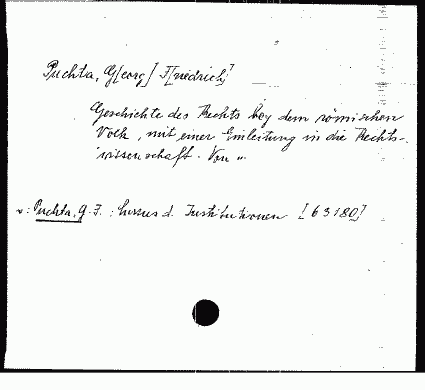 Puchta, G[eorg] F[riedrich]
Geschichte des Rechts bey dem römischen
Volk, mit einer Einleitung in die Rechts-
wissenschaft. Von ..
v: Puchta, G. F.: Cursus d. Institutionen [63180]